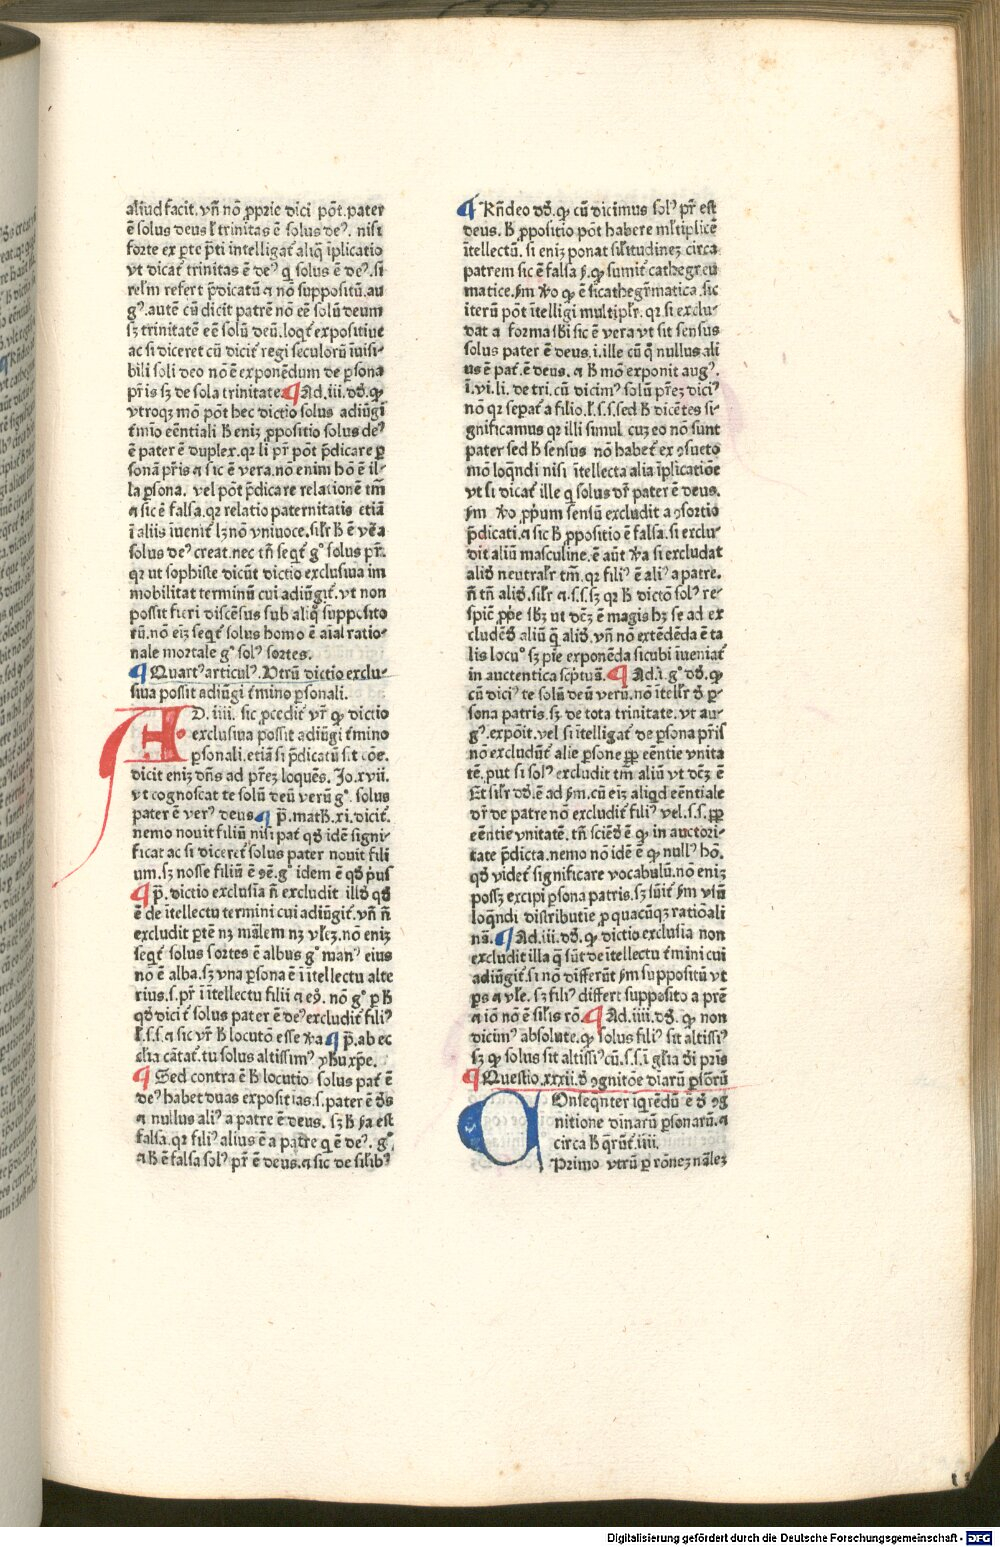 aliud facit. vñ nõ ꝓprie dici põt. pater
ẽ solus deus ł trinitas ẽ solus deꝰ. nisi
forte ex ꝑte p̃ti intelligat᷑ aliq̃ ĩplicatio
vt dicat᷑ trinitas ẽ deꝰ q̃ solus ẽ deꝰ. si
refert p̃dicatũ ⁊ nõ suppositũ. au
gꝰ. autẽ cũ dicit patrẽ nõ eẽ solũ deum
sꝫ trinitatẽ eẽ solũ deũ. loqt᷑ expositiue
ac si diceret cũ dicit᷑ regi seculorũ ĩuisi-
bili soli deo nõ ẽ exponẽdum de ꝑsona
pr̃is sꝫ de sola trinitate ¶ Ad .iii. dð. ꝙ
vtroqꝫ mõ põt hec dictio solus adiũgi
t᷑mio eẽntiali ħ eniꝫ ꝓpositio solus deꝰ
ẽ pater ẽ duplex. qꝛ li pr̃ põt p̃dicare ꝑ
sonã pr̃is ⁊ sic ẽ vera. nõ enim hõ ẽ il-
la ꝑsona. vel põt p̃dicare relationẽ tm̃
⁊ sic ẽ falsa. qꝛ relatio paternitatis etiã
ĩ aliis ĩuenit᷑ lꝫ nõ vniuoce. sil̃r ħ ẽ vẽa
solus deꝰ creat. nec tñ seqt᷑ gͦ solus pr̃.
qꝛ ut sophiste dicũt dictio exclusiua im
mobilitat terminũ cui adiũgit᷑. vt non
possit fieri discẽsus sub aliq̃ supposito
rũ. nõ eiꝫ seqt᷑ solus homo ẽ aĩal ratio-
nale mortale gͦ solꝰ sortes.
¶ Quartꝰ articulꝰ. Utrũ dictio exclu-
siua possit adiũgi t᷑mino ꝑsonali.
AD. iiii. sic ꝓcedit᷑ vr̃ ꝙ dictio
exclusiua possit adiũgi t᷑mino
ꝑsonali. etiã si p̃dicatũ sit cõe.
dicit eniꝫ dñs ad pr̃eꝫ loquẽs. Jo. xvii.
vt cognoscãt te solũ deũ verũ gͦ. solus
pater ẽ verꝰ deus ¶ p̃. matħ. xi. dicit᷑.
nemo nouit filiũ nisi pat᷑ qð idẽ signi-
ficat ac si diceret᷑ solus pater nouit fili
um. sꝫ nosse filiũ ẽ ꝯẽ. gͦ idem ẽ qð p̃us
¶ p̃. dictio exclusia ñ excludit illð qð
ẽ de ĩtellectu termini cui adiũgit᷑. vñ ñ
excludit ꝑtẽ nꝫ mãlem nꝫ vł̃eꝫ. nõ eniꝫ
seqt᷑ solus sortes ẽ albus gͦ manꝰ eius
nõ ẽ alba. sꝫ vna ꝑsona ẽ ĩ ĩtellectu alte
rius. s. pr̃ ĩ ĩtellectu filii ⁊ eͦ. nõ gͦ ꝑ ħ
qð dicit᷑ solus pater ẽ deꝰ excludit᷑ filiꝰ
ł. s. s. ⁊ sic vr̃ ħ locutõ esse ꝟa ¶ p̃. ab ec
cl̃ia cãtat᷑. tu solus altissimꝰ yhu xpẽ.
¶ Sed contra ẽ ħ locutio solus pat᷑ ẽ
deꝰ habet duas expositias. s. pater ẽ dẽs
⁊ nullus aliꝰ a patre ẽ deus. sꝫ ħ ẜa est
falsa. qꝛ filiꝰ alius ẽ a patre q̃ ẽ deꝰ. gͦ
⁊ ħ ẽ falsa solꝰ pr̃ ẽ deus. ⁊ sic de sil̃ibꝰ
¶ Rñdeo dð. ꝙ cũ dicimus solꝰ pr̃ est
deus. ħ ꝓpositio põt habere ml̃tiplicẽ
ĩtellectũ. si eniꝫ ponat sil̃itudineꝫ circa
patrem sic ẽ falsa ẜ. ꝙ sumit᷑ cathegreu
matice. ẜm ꝟo ꝙ ẽ sĩcathegr̃matica. sic
iterũ põt ĩtelligi multipl̃r. qꝛ si exclu-
dat a forma sb̃i sic ẽ vera vt sit sensus
solus pater ẽ deus. i. ille cũ q̃ nullus ali
us ẽ pat᷑. ẽ deus. ⁊ ħ mõ exponit augꝰ.
ĩ. vi. li. de tri. cũ dicimꝰ solũ pr̃eꝫ diciꝰ
nõ qꝛ seꝑat᷑ a filio. ł. s. s. sed ħ dicẽtes si-
gnificamus qꝛ illi simul cuꝫ eo nõ sunt
pater sed ħ sensus nõ habet᷑ ex ꝯsueto
mõ loqñdi nisi ĩtellecta alia ĩplicatiõe
vt si dicat᷑ ille q̃ solus dr̃ pater ẽ deus.
ẜm ꝟo ꝓp̃um sensũ excludit a ꝯsortio
p̃dicati. ⁊ sic ħ ꝓpositio ẽ falsa. si exclu-
dit aliũ masculine. ẽ aũt ꝟa si excludat
alið neutral̃r tm̃. qꝛ filiꝰ ẽ aliꝰ a patre.
ñ tñ alið. sil̃r ⁊. s. s. sꝫ qꝛ ħ dictõ solꝰ re
spiĉ ꝓp̃e sb̃ꝫ ut dc̃ꝫ ẽ magis hꝫ se ad ex
cludẽð aliũ q̃ alið. vñ nõ extẽdẽda ẽ ta
lis locuꝰ sꝫ pie exponẽda sicubi ĩueniat᷑
in auctentica sc̃ptura. ¶ Ad. i. gͦ dð. ꝙ
cũ diciꝰ te solũ deũ verũ. nõ ĩtell̃r ð ꝑ-
sona patris. sꝫ de tota trinitate. vt au-
gꝰ. expõit. vel si ĩtelligat᷑ de ꝑsona pr̃is
nõ excludũt᷑ alie ꝑsone ꝓpt eẽntie vnita
tẽ. put si solꝰ excludit tm̃ aliũ vt dc̃ꝫ ẽ
Et sil̃r dð. ẽ ad ẜm. cũ eiꝫ aliqð eẽntiale
dr̃ de patre nõ excludit᷑ filiꝰ vel. s. s. ꝓpt
eẽntie vnitatẽ. tñ sciẽð ẽ ꝙ in auctori-
tate p̃dicta. nemo nõ idẽ ẽ ꝙ nullꝰ hõ.
qð videt᷑ significare vocabulũ. nõ eniꝫ
possꝫ excipi ꝑsona patris. sꝫ sũit᷑ ẜm vsũ
loqñdi distributie ꝓ quacũqꝫ ratiõali
nã. ¶ Ad. iii. dð. ꝙ dictio exclusia non
excludit illa q̃ sũt de ĩtellectu t᷑mini cui
adiũgit᷑. si nõ differũt ẜm suppositũ vt
ꝑs ⁊ vł̃e. sꝫ filiꝰ differt supposito a pr̃e
⁊ iõ nõ ẽ sil̃is rõ. ¶ Ad. iiii. dð. ꝙ non
dicimꝰ absolute. ꝙ solus filiꝰ sit altissiꝰ
sꝫ ꝙ solus sit altissiꝰ cũ. s. s. i gl̃ia dei pris
¶ Questio. xxxii. ð ꝯgnitõe diuarũ ꝑsõrũ
COnseqnter iq̃rẽdũ ẽ ð ꝯg
nitione diuinarũ ꝑsonarũ. ⁊
circa ħ q̃runt᷑. iiii.
Primo vtrũ ꝑ rõneꝫ nãleꝫ
Digitalisierung gefördert durch die Deutsche Forschungsgemeinschaft - DFG